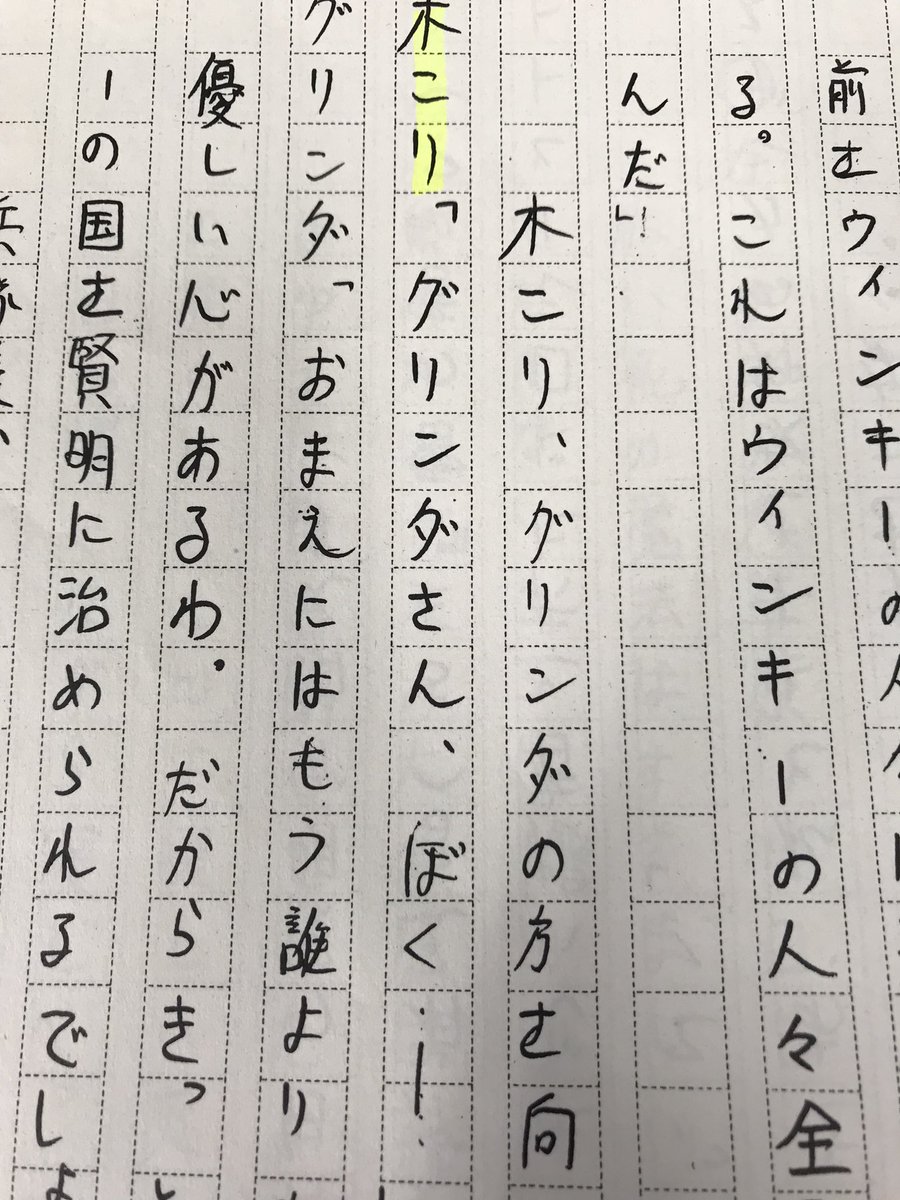 前をウィンキーの人々
る。これはウインキーの人々全
んだ」!
木こり、グリンダの方を向
木こり「グリンダさん、ぼく・ー・
グリンダ「おまえにはもう誰より
優しい心があるわ。だからきっ
ーの国を賢明に治められるでしょ